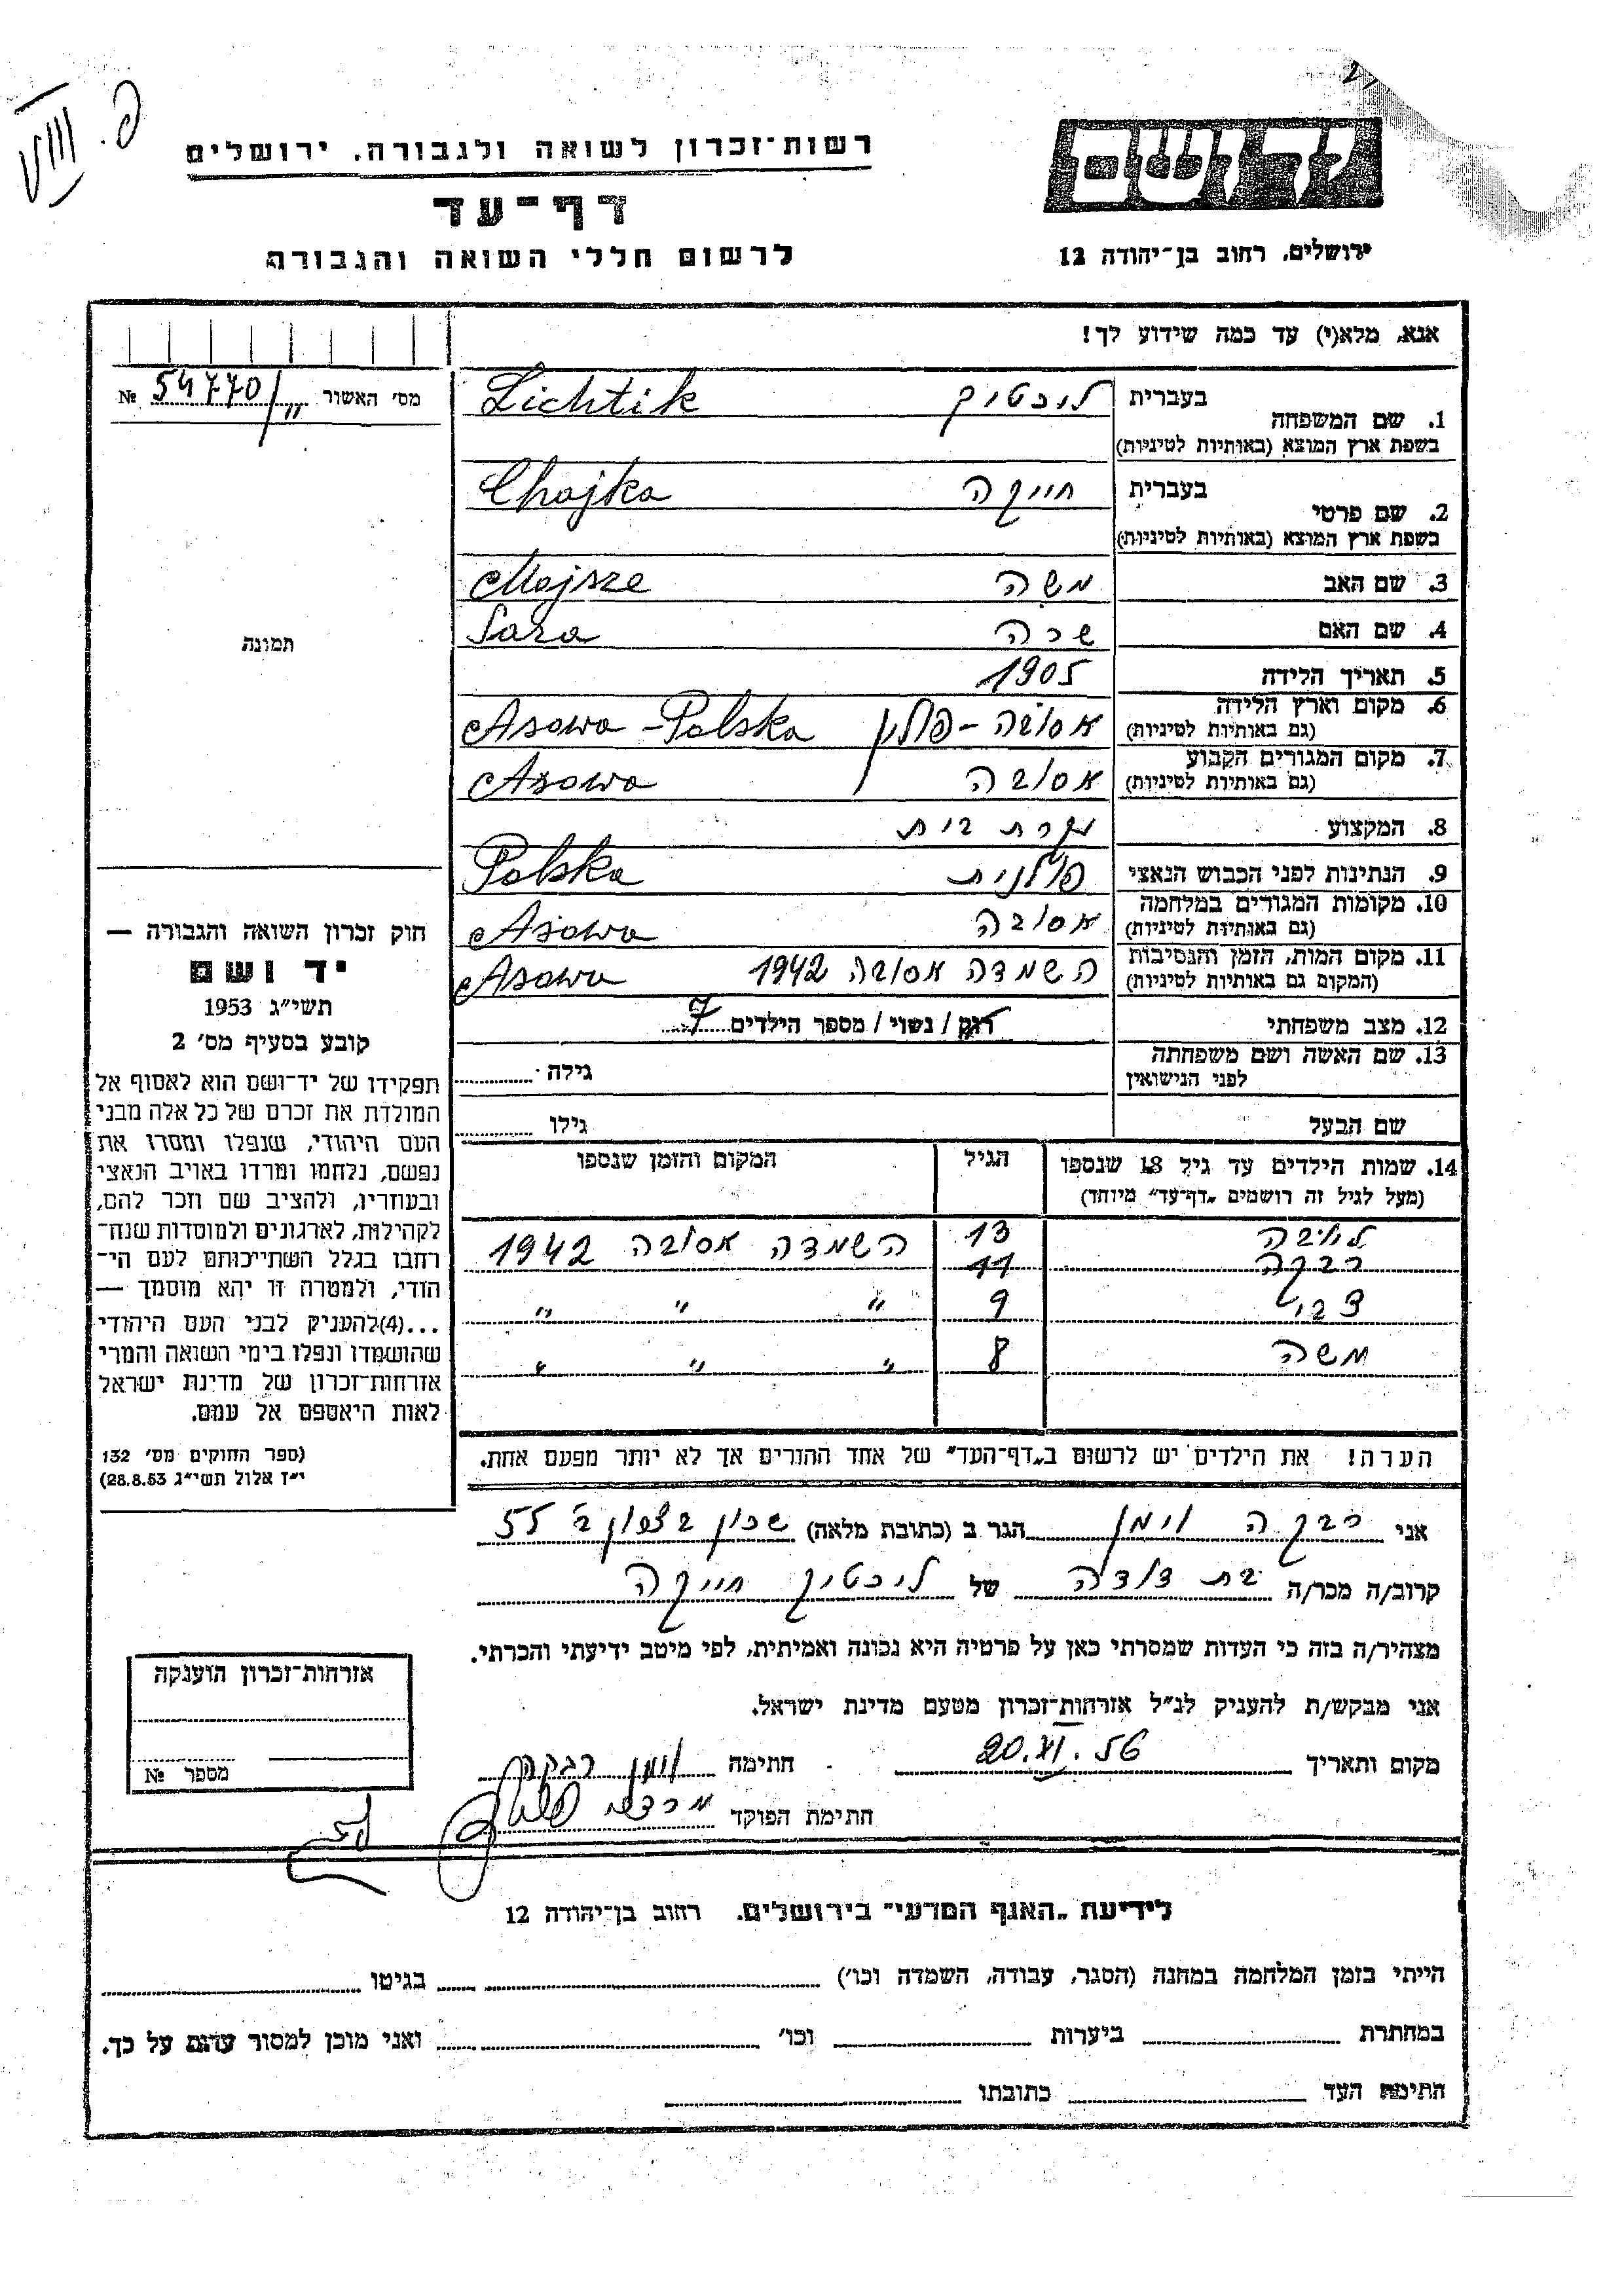 פ. VIII
יד ושם
רשות־זכרון לשואה ולגבורה, ירושלים
דף־עד
לרשום חללי השואה והגבורה
ירושלים, רחוב בן־יהודה 12
אנא, מלא(י) עד כמה שידוע לך!
מס' האשור 54770/״ №
תמונה
1. שם המשפחה בעברית ליכטיק Lichtik
בשפת ארץ המוצא (באותיות לטיניות)
2. שם פרטי בעברית חייקה Chajka
בשפת ארץ המוצא (באותיות לטיניות)
3. שם האב משה Mojsze
4. שם האם שרה Sara
5. תאריך הלידה 1905
6. מקום וארץ הלידה אסובה - פולין Asowa - Polska
(גם באותיות לטיניות)
7. מקום המגורים הקבוע אסובה Asowa
(גם באותיות לטיניות)
8. המקצוע עקרת בית
9. הנתינות לפני הכבוש הנאצי פולנית Polska
10. מקומות המגורים במלחמה אסובה Asowa
(גם באותיות לטיניות)
11. מקום המות, הזמן והנסיבות השמדה אסובה 1942 Asowa
(המקום גם באותיות לטיניות)
12. מצב משפחתי רוק / נשוי / מספר הילדים 7
13. שם האשה ושם משפחתה לפני הנישואין גילה
שם הבעל גילו
14. שמות הילדים עד גיל 18 שנספו הגיל המקום והזמן שנספו
(מעל לגיל זה רושמים „דף־עד" מיוחד)
13 השמדה אסובה 1942
רבקה 11
צבי 9 " " "
משה 8 " " "
הערה! את הילדים יש לרשום ב„דף־העד" של אחד ההורים אך לא יותר מפעם אחת.
חוק זכרון השואה והגבורה —
יד ושם
תשי״ג 1953
קובע בסעיף מס' 2
תפקידו של יד־ושם הוא לאסוף אל
המולדת את זכרם של כל אלה מבני
העם היהודי, שנפלו ומסרו את
נפשם, נלחמו ומרדו באויב הנאצי
ובעוזריו, ולהציב שם וזכר להם,
לקהילות, לארגונים ולמוסדות שנח־
רחבו בגלל השתייכותם לעם הי־
הודי, ולמטרה זו יהא מוסמך —
...(4) להעניק לבני העם היהודי
שהושמדו ונפלו בימי השואה והמרי
אזרחות־זכרון של מדינת ישראל
לאות היאספם אל עמם.
(ספר החוקים מס' 132
י״ז אלול תשי״ג 28.8.53)
אני רבקה וימן הגר ב (כתובת מלאה) שכון בצפון ב 55
קרוב/ה מכר/ה בת דודה של ליכטיק חייקה
מצהיר/ה בזה כי העדות שמסרתי כאן על פרטיה היא נכונה ואמיתית, לפי מיטב ידיעתי והכרתי.
אני מבקש/ת להעניק לנ״ל אזרחות־זכרון מטעם מדינת ישראל.
מקום ותאריך 20.XI.56 חתימה וימן רבקה
חתימת הפוקד מרדכי
אזרחות־זכרון הוענקה
מספר №
לידיעת „האגף המדעי" בירושלים, רחוב בן־יהודה 12
הייתי בזמן המלחמה במחנה (הסגר, עבודה, השמדה וכו') בגיטו
במחתרת ביערות וכו' ואני מוכן למסור עדות על כך.
חתימת העד כתובתו